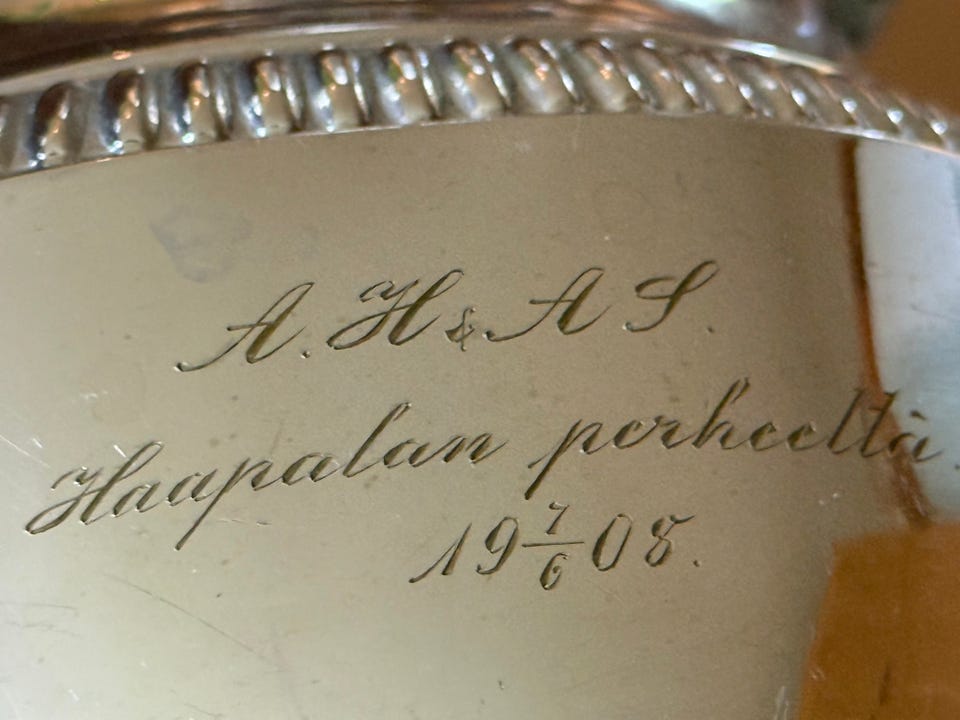 A. H & A S.
Haapalan perheeltä.
19 7/6 08.